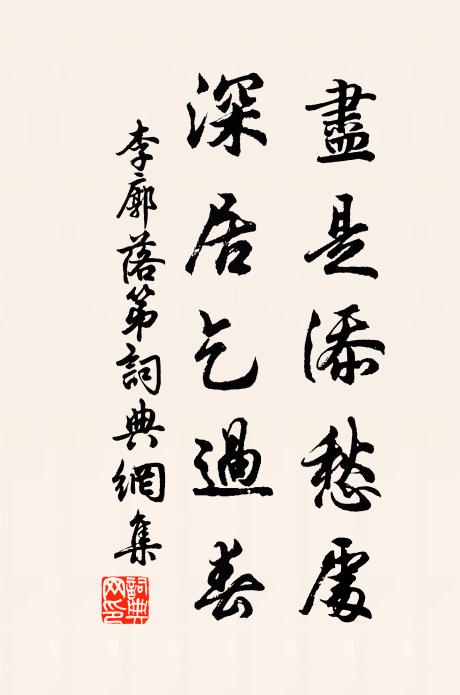 盡是添愁處
深居乞過春
李廓落第詞典網集
詞典網印